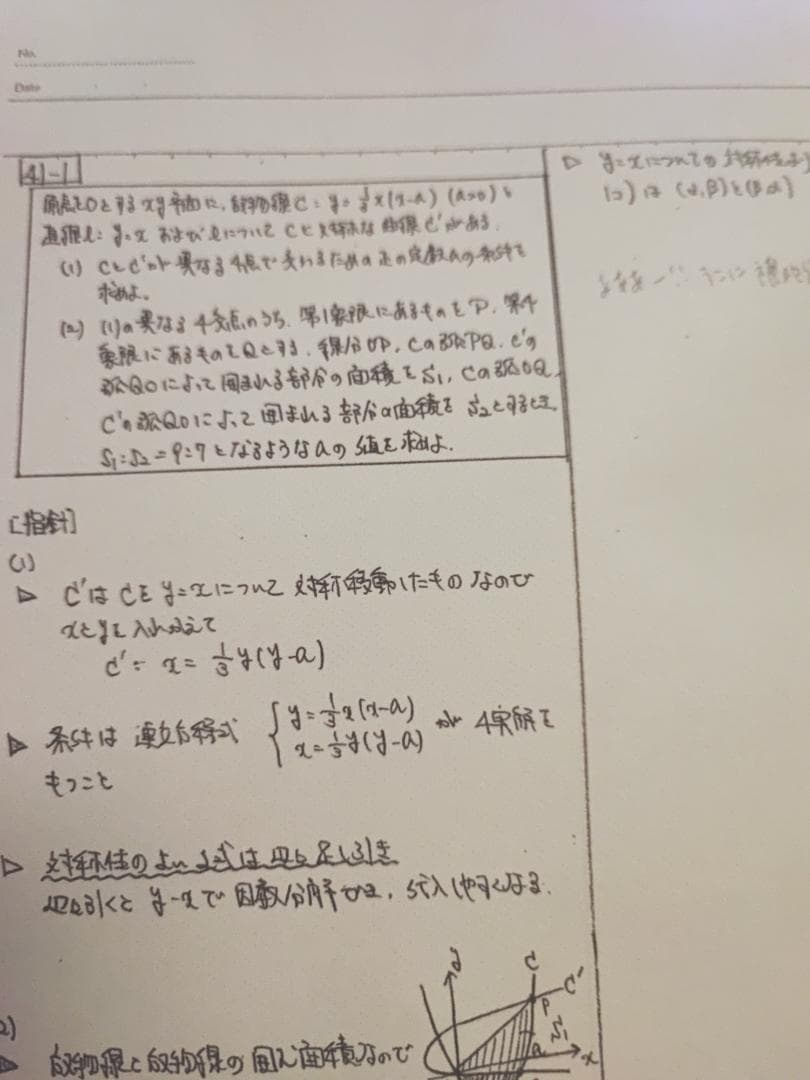 No.
Date
41-1
原点をOとするxy平面に、放物線C: y=1/3x(x-a) (a>0)と
直線ℓ: y=x およびℓについてCと対称な曲線C'がある。
(1) CとC'が異なる4点で交わるための正の定数aの条件を
求めよ。
(2) (1)の異なる4交点のうち、第1象限にあるものをP、第4
象限にあるものをQとする。線分OP、Cの弧PQ、C'の
弧QOによって囲まれる部分の面積をS₁、Cの弧OQ、
C'の弧QOによって囲まれる部分の面積をS₂とするとき、
S₁:S₂=9:7となるようなaの値を求めよ。
▷ y=xについての対称性より
(α,β)と(β,α)
[指針]
(1)
▷ C'はCをy=xについて対称移動したものなので
xとyを入れかえて
C': x=1/3y(y-a)
▷ 条件は連立方程式 { y=1/3x(x-a) x=1/3y(y-a) が4実解を
もつこと
▷ 対称性のよい2式は辺々足し引き
辺々引くとy-xで因数分解でき、代入しやすくなる。
y
C
C'
P
S₁
a
x
2)
▷ 放物線と放物線の囲む面積なので